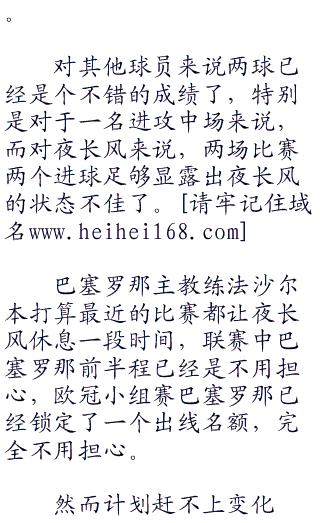 。
对其他球员来说两球已
经是个不错的成绩了，特别
是对于一名进攻中场来说，
而对夜长风来说，两场比赛
两个进球足够显露出夜长风
的状态不佳了。[请牢记住域
名www.heihei168.com]
巴塞罗那主教练法沙尔
本打算最近的比赛都让夜长
风休息一段时间，联赛中巴
塞罗那前半程已经是不用担
心，欧冠小组赛巴塞罗那已
经锁定了一个出线名额，完
全不用担心。
然而计划赶不上变化